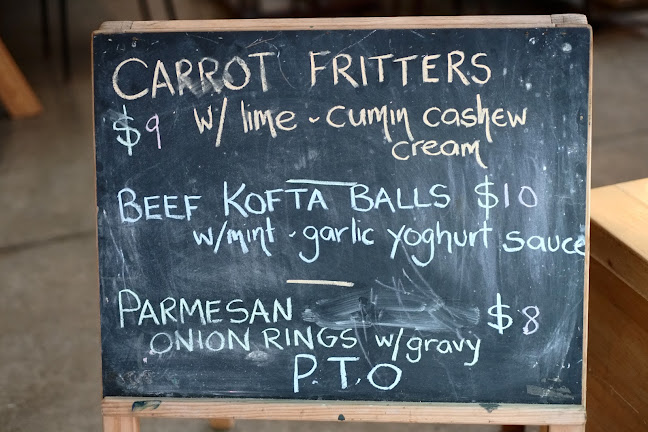 CARROT FRITTERS
$9 w/ lime - cumin cashew
cream
BEEF KOFTA BALLS $10
w/mint - garlic yoghurt sauce
PARMESAN $8
ONION RINGS w/gravy
P.T.O